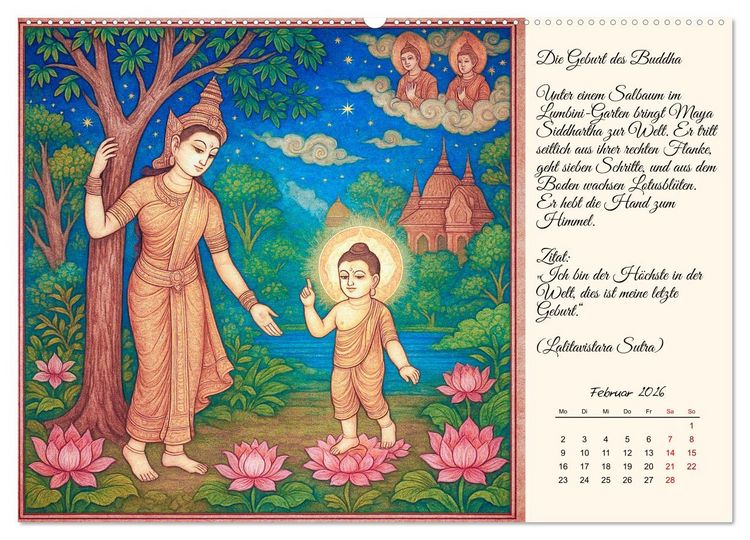 Die Geburt des Buddha
Unter einem Salbaum im
Lumbini-Garten bringt Maya
Siddhartha zur Welt. Er tritt
seitlich aus ihrer rechten Flanke,
geht sieben Schritte, und aus dem
Boden wachsen Lotusblüten.
Er hebt die Hand zum
Himmel.
Zitat:
„Ich bin der Höchste in der
Welt, dies ist meine letzte
Geburt.“
(Lalitavistara Sutra)
Februar 2026
Mo Di Mi Do Fr Sa So
1
2 3 4 5 6 7 8
9 10 11 12 13 14 15
16 17 18 19 20 21 22
23 24 25 26 27 28